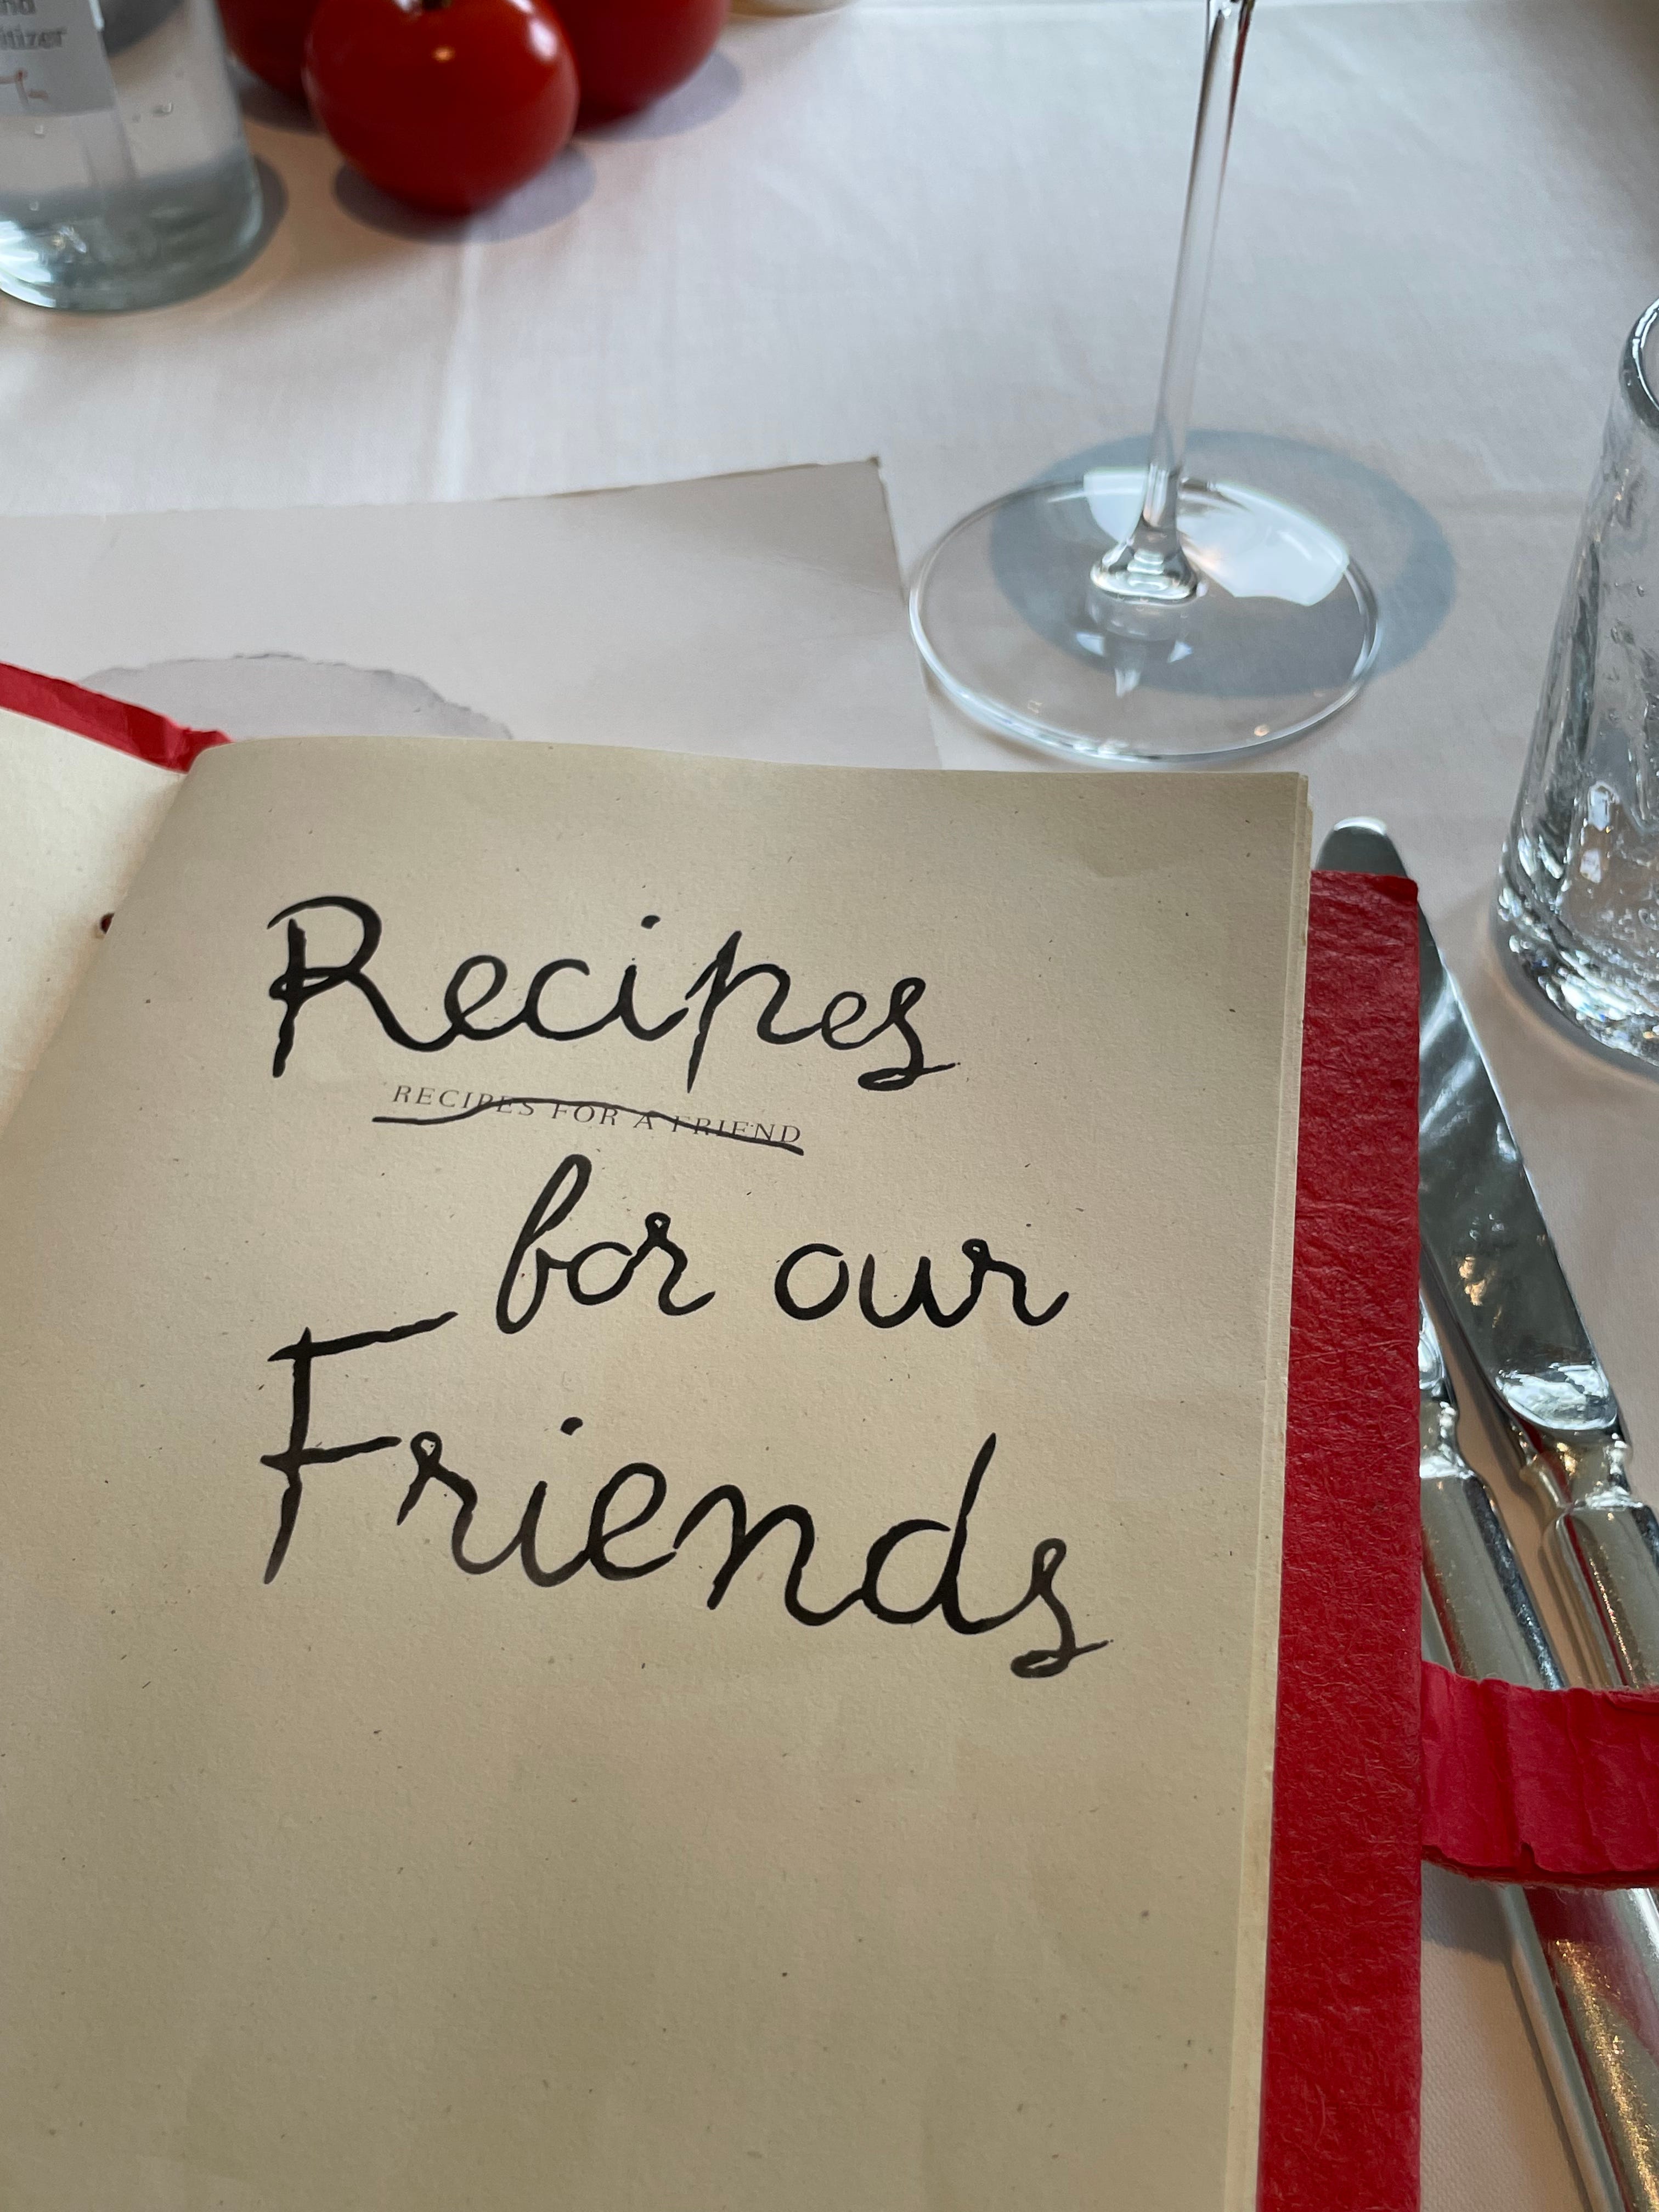 Recipes
RECIPES FOR A FRIEND
for our
Friends